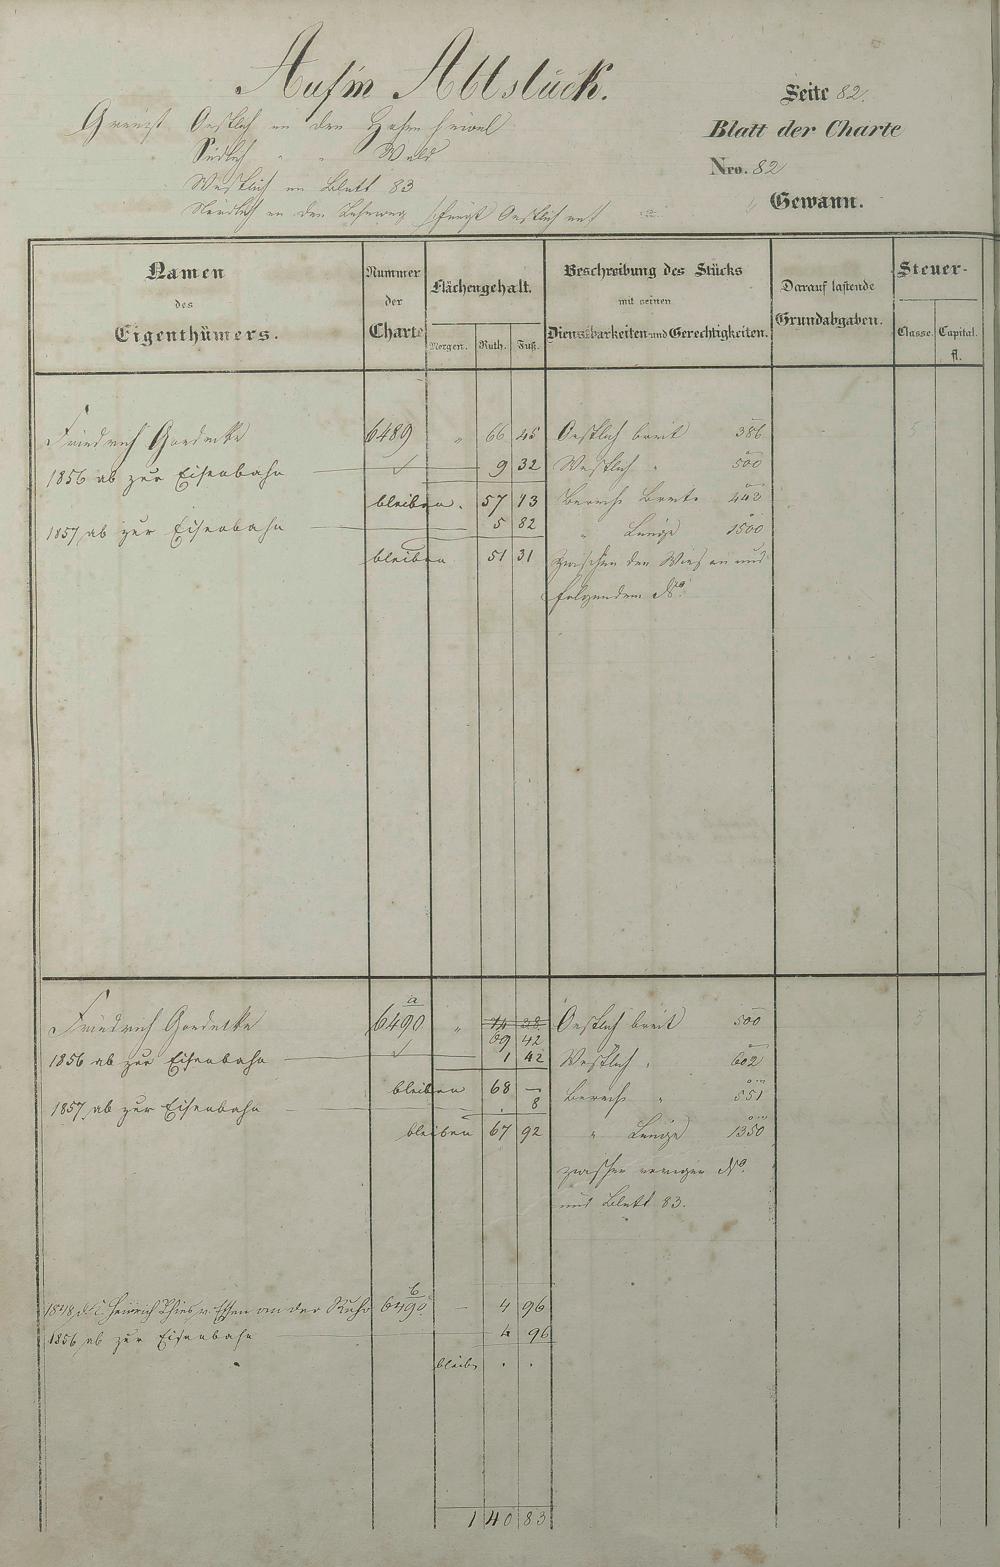 Aufm Altstück.
Seite 82.
Grenzt Oestlich an den
Blatt der Charte
Südlich " " Wald
Nro. 82
Westlich an Blatt 83
Nordlich an den fängt Oestlich an
" Gewann.
Namen des Eigenthümers.
Nummer der Charte
Flächengehalt.
Morgen. Ruth. Fuß.
Beschreibung des Stücks mit seinen Dienstbarkeiten und Gerechtigkeiten.
Darauf lastende Grundabgaben.
Steuer-
Classe. Capital. fl.
Friedrich Goedecke 6489 " 66 45 Oestlich breit 386
1856 ab zur Eisenbahn 9 32 Westlich " 500
bleiben. 57 13 Berechn Breite 443
1857 ab zur Eisenbahn 5 82 " Länge 1500
bleiben 51 31 zwischen den Wiesen und
folgendem No.
a
Friedrich Goedecke 6490 " 74 38 Oestlich breit 500
69 42
1856 ab zur Eisenbahn 1 42 Westlich " 602
bleiben 68 — Berech " 551
1857 ab zur Eisenbahn . 8
bleiben 67 92 " Länge 1350
zwischen voriger No.
und Blatt 83.
b
1848 Heinrich Thies v. Essen an der Ruhr 6490 — 4 96
1856 ab zur Eisenbahn 4 96
bleib. . .
1 40 83